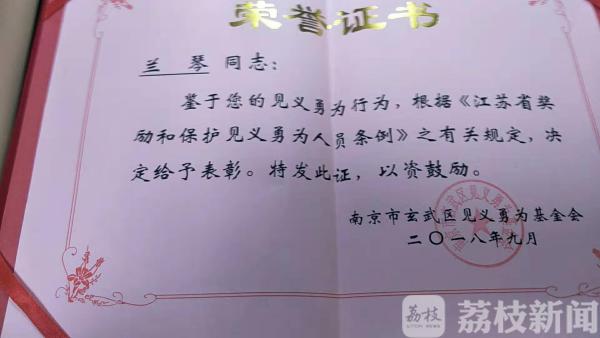 荣誉证书
兰 琴 同志：
鉴于您的见义勇为行为，根据《江苏省奖
励和保护见义勇为人员条例》之有关规定，决
定给予表彰。特发此证，以资鼓励。
南京市玄武区见义勇为基金会
二〇一八年九月
荔枝 荔枝新闻